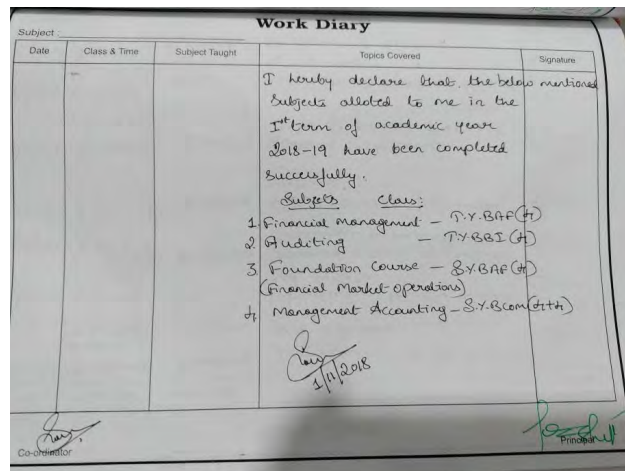 Work Diary
Subject :
Date Class & Time Subject Taught Topics Covered Signature
I hereby declare that the below mentioned
subjects alloted to me in the
Ist term of academic year
2018-19 have been completed
successfully.
Subjects Class:
1. Financial Management - T.Y.BAF(4)
2 Auditing - T.Y.BBI(4)
3 Foundation Course - S.Y.BAF(4)
(Financial Market Operations)
4 Management Accounting - S.Y.Bcom(4+4)
1/11/2018
Co-ordinator Principal